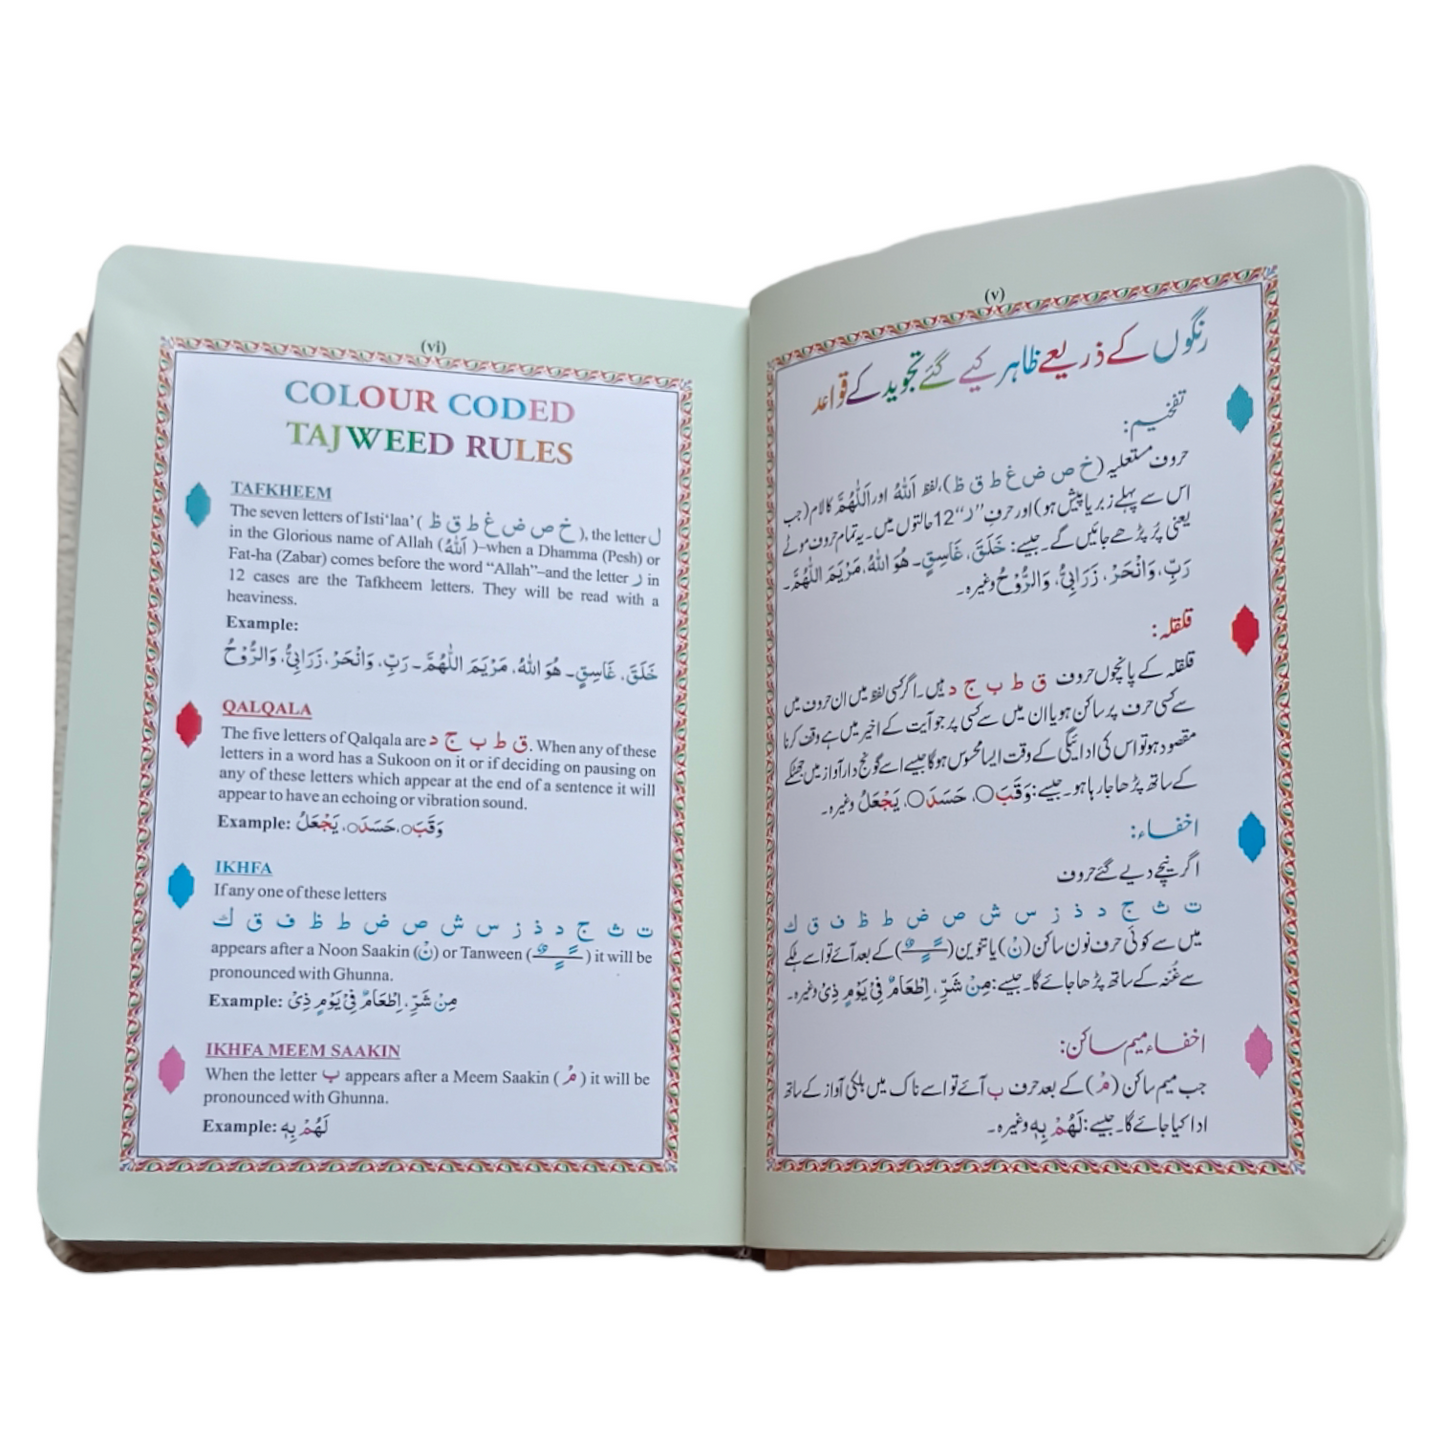 (vi)
COLOUR CODED
TAJWEED RULES
TAFKHEEM
The seven letters of Isti‘laa’ ( خ ص ض غ ط ق ظ ), the letter ل
in the Glorious name of Allah ( اَللّٰهُ )–when a Dhamma (Pesh) or
Fat-ha (Zabar) comes before the word “Allah”–and the letter ر in
12 cases are the Tafkheem letters. They will be read with a
heaviness.
Example:
خَلَقَ، غَاسِقٍ۔ هُوَ اللّٰهُ، مَرْيَمَ اللّٰهُمَّ۔ رَبِّ، وَانْحَرْ، زَرَابِيُّ، وَالرُّوْحُ
QALQALA
The five letters of Qalqala are ق ط ب ج د. When any of these
letters in a word has a Sukoon on it or if deciding on pausing on
any of these letters which appear at the end of a sentence it will
appear to have an echoing or vibration sound.
Example: وَقَبَ○، حَسَدَ○، يَجْعَلُ
IKHFA
If any one of these letters
ت ث ج د ذ ز س ش ص ض ط ظ ف ق ك
appears after a Noon Saakin (نْ) or Tanween ( ـًـٍـٌ ) it will be
pronounced with Ghunna.
Example: مِنْ شَرِّ، اِطْعَامٌ فِیْ يَوْمٍ ذِیْ
IKHFA MEEM SAAKIN
When the letter ب appears after a Meem Saakin ( مْ ) it will be
pronounced with Ghunna.
Example: لَهُمْ بِهٖ
(v)
رنگوں کے ذریعے ظاہر کیے گئے تجوید کے قواعد
تفخیم:
حروف مستعلیہ (خ ص ض غ ط ق ظ)، لفظ اَللّٰهُ اور اَللّٰهُمَّ کا لام (جب
اس سے پہلے زبر یا پیش ہو) اور حرف ”ر“ 12 حالتوں میں۔ یہ تمام حروف موٹے
یعنی پُر پڑھے جائیں گے۔ جیسے: خَلَقَ، غَاسِقٍ۔ هُوَ اللّٰهُ، مَرْيَمَ اللّٰهُمَّ۔
رَبِّ، وَانْحَرْ، زَرَابِيُّ، وَالرُّوْحُ وغیرہ۔
قلقلہ:
قلقلہ کے پانچوں حروف ق ط ب ج د ہیں۔ اگر کسی لفظ میں ان حروف میں
سے کسی حرف پر ساکن ہو یا ان میں سے کسی پر جو آیت کے اخیر میں ہے وقف کرنا
مقصود ہو تو اس کی ادائیگی کے وقت ایسا محسوس ہوگا جیسے اسے گونج دار آواز میں جھٹکے
کے ساتھ پڑھا جا رہا ہو۔ جیسے: وَقَبَ○، حَسَدَ○، يَجْعَلُ وغیرہ۔
اخفاء:
اگر نیچے دیے گئے حروف
ت ث ج د ذ ز س ش ص ض ط ظ ف ق ك
میں سے کوئی حرف نون ساکن (نْ) یا تنوین ( ـًـٍـٌ ) کے بعد آئے تو اسے ہلکے
سے غُنہ کے ساتھ پڑھا جائے گا۔ جیسے: مِنْ شَرِّ، اِطْعَامٌ فِیْ يَوْمٍ ذِیْ وغیرہ۔
اخفاء میم ساکن:
جب میم ساکن (مْ) کے بعد حرف ب آئے تو اسے ناک میں ہلکی آواز کے ساتھ
ادا کیا جائے گا۔ جیسے: لَهُمْ بِهٖ وغیرہ۔